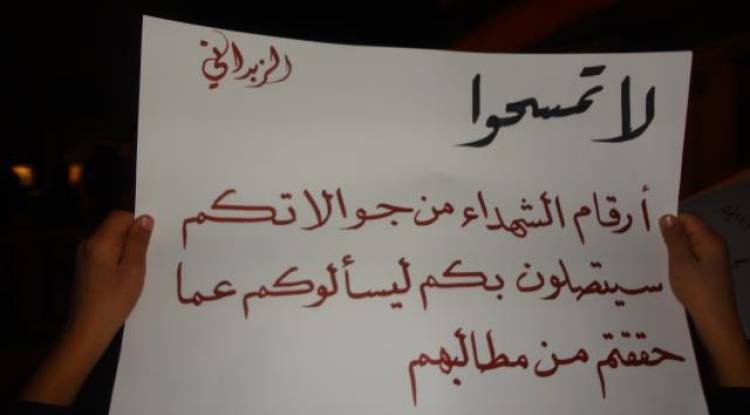 الزبداني
لا تمسحوا
أرقام الشهداء من جوالاتكم
سيتصلون بكم ليسألوكم عما
حققتم من مطالبهم